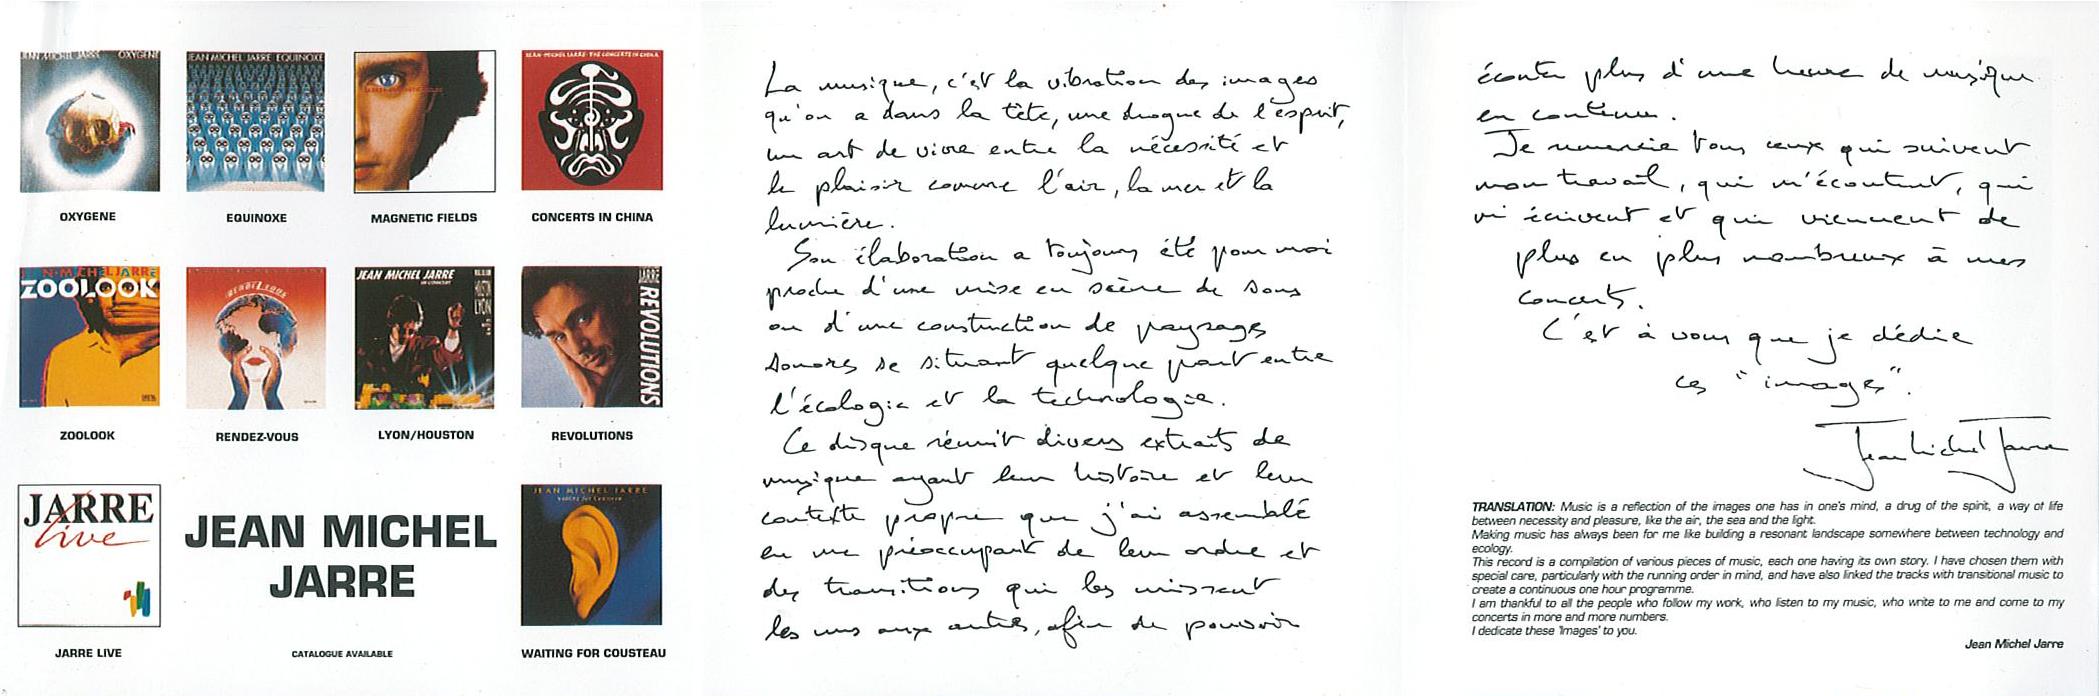 JEAN MICHEL JARRE OXYGENE
OXYGENE
JEAN MICHEL JARRE EQUINOXE
EQUINOXE
MAGNETIC FIELDS
JEAN-MICHEL JARRE-THE CONCERTS IN CHINA
CONCERTS IN CHINA
JEAN-MICHEL JARRE
ZOOLOOK
ZOOLOOK
RENDEZ-VOUS
RENDEZ-VOUS
JEAN MICHEL JARRE
IN CONCERT
HOUSTON
LYON
LYON/HOUSTON
JARRE
REVOLUTIONS
REVOLUTIONS
JARRE
live
JARRE LIVE
JEAN MICHEL
JARRE
CATALOGUE AVAILABLE
JEAN MICHEL JARRE
Waiting for Cousteau
WAITING FOR COUSTEAU
La musique, c'est la vibration des images
qu'on a dans la tête, une drogue de l'esprit,
un art de vivre entre la nécessité et
le plaisir comme l'air, la mer et la
lumière.
Son élaboration a toujours été pour moi
proche d'une mise en scène de sons
ou d'une construction de paysages
sonores se situant quelque part entre
l'écologie et la technologie.
Ce disque réunit divers extraits de
musique ayant leur histoire et leur
contexte propre que j'ai assemblé
en me préoccupant de leur ordre et
des transitions qui les unissent
les uns aux autres, afin de pouvoir
écouter plus d'une heure de musique
en continu.
Je remercie tous ceux qui suivent
mon travail, qui m'écoutent, qui
m'écrivent et qui viennent de
plus en plus nombreux à mes
concerts.
C'est à vous que je dédie
ces "images".
Jean Michel Jarre
TRANSLATION: Music is a reflection of the images one has in one's mind, a drug of the spirit, a way of life
between necessity and pleasure, like the air, the sea and the light.
Making music has always been for me like building a resonant landscape somewhere between technology and
ecology.
This record is a compilation of various pieces of music, each one having its own story. I have chosen them with
special care, particularly with the running order in mind, and have also linked the tracks with transitional music to
create a continuous one hour programme.
I am thankful to all the people who follow my work, who listen to my music, who write to me and come to my
concerts in more and more numbers.
I dedicate these 'Images' to you.
Jean Michel Jarre